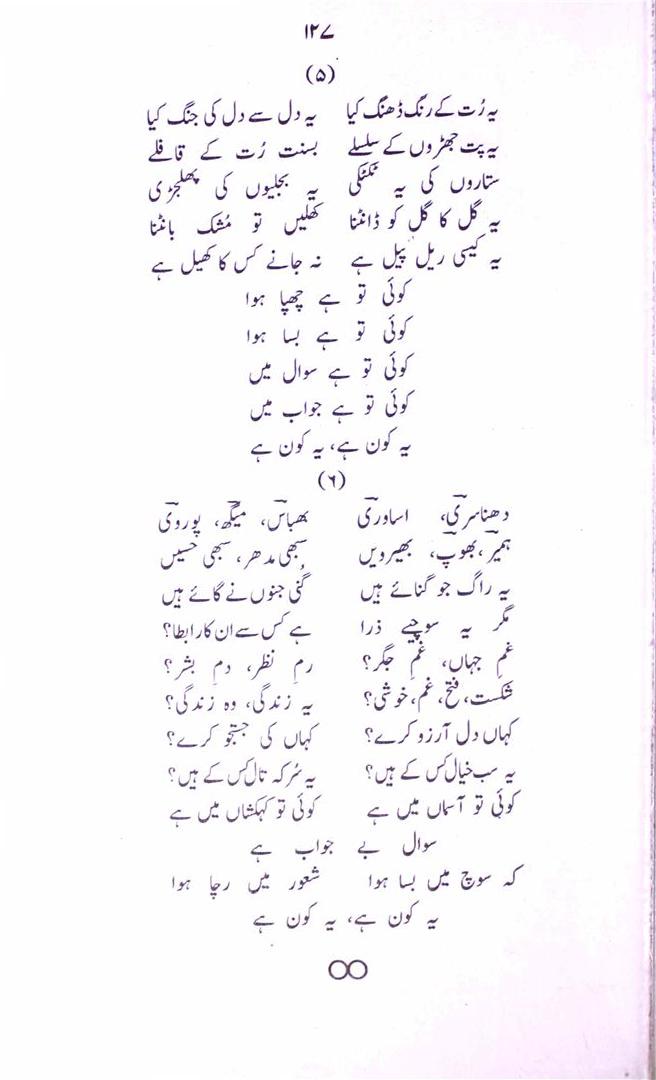 ۱۲۷
(۵)
یہ رُت کے رنگ ڈھنگ کیا یہ دل سے دل کی جنگ کیا
یہ پت جھڑوں کے سلسلے بسنت رُت کے قافلے
ستاروں کی یہ ٹکٹکی یہ بجلیوں کی پھلجڑی
یہ گل کا گل کو ڈانٹنا کھلیں تو مُشک بانٹنا
یہ کیسی ریل پیل ہے نہ جانے کس کا کھیل ہے
کوئی تو ہے چھپا ہوا
کوئی تو ہے بسا ہوا
کوئی تو ہے سوال میں
کوئی تو ہے جواب میں
یہ کون ہے، یہ کون ہے
(۶)
دھناسری، اساوری بھباس، میگھ، پوروی
ہمیر، بھوپ، بھیرویں سبھی مدھر، سبھی حسیں
یہ راگ جو گنائے ہیں گُنی جنوں نے گائے ہیں
مگر یہ سوچیے ذرا ہے کس سے ان کا رابطا؟
غمِ جہاں، غمِ جگر؟ رمِ نظر، دمِ بشر؟
شکست، فتح، غم، خوشی؟ یہ زندگی، وہ زندگی؟
کہاں دل آرزو کرے؟ کہاں کی جستجو کرے؟
یہ سب خیال کس کے ہیں؟ یہ سُر کہ تال کس کے ہیں؟
کوئی تو آسماں میں ہے کوئی تو کہکشاں میں ہے
سوال بے جواب ہے
کہ سوچ میں بسا ہوا شعور میں رچا ہوا
یہ کون ہے، یہ کون ہے